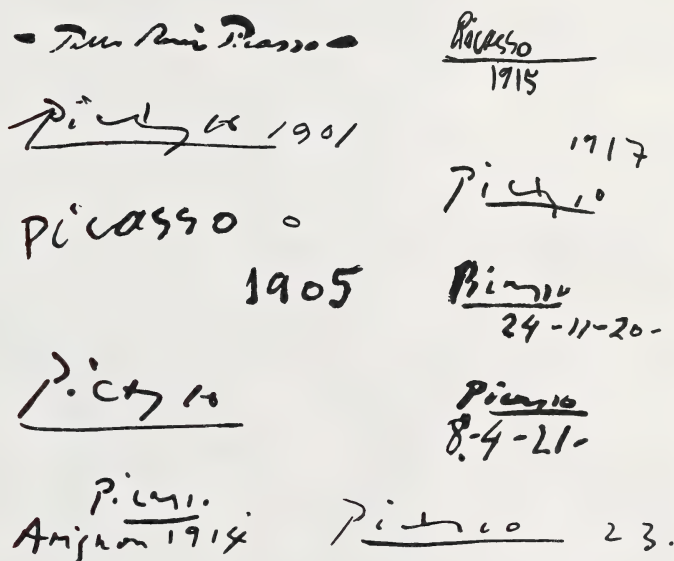 - Pablo Ruiz Picasso -
Picasso 1901
Picasso
1905
Picasso
Picasso
Avignon 1914
Picasso
1915
1917
Picasso
Picasso
24-11-20-
Picasso
8-4-21-
Picasso 23.